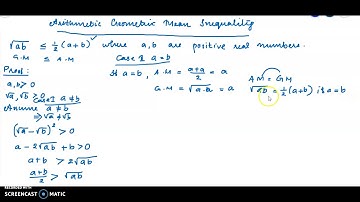 Arithmetic Geometric Mean Inequality
√ab ≤ ½(a+b) where a,b are positive real numbers.
G.M ≤ A.M
Proof:
a,b>0
√a,√b>0
Case I a≠b
Assume a≠b
⇒√a≠√b
(√a-√b)²>0
a-2√ab+b>0
a+b>2√ab
a+b/2>√ab
Case II a=b
If a=b, A.M = a+a/2 = a
G.M = √a·a = a
AM = GM
√ab = ½(a+b) if a=b
RECORDED WITH
SCREENCAST MATIC